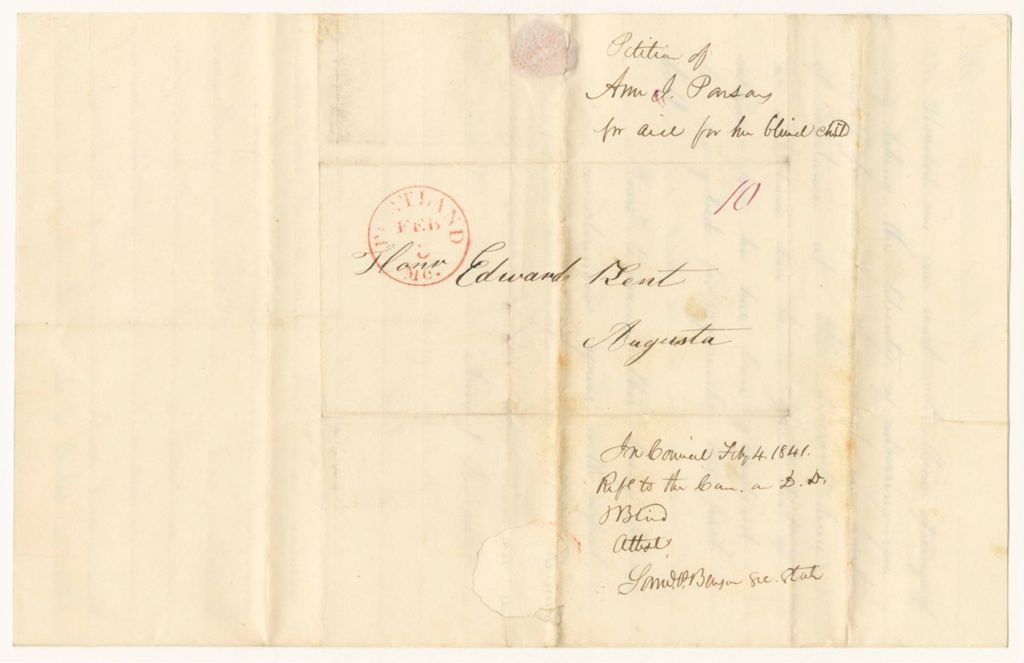 Petition of
Ann J. Parsons
for aid for her blind child
10
PORTLAND
FEB
Me.
Honr Edward Kent
Augusta
In Council Feby 4. 1841.
Refd to the Com. on D. D.
& Blind
Attest
Saml P. Benson Sec. State